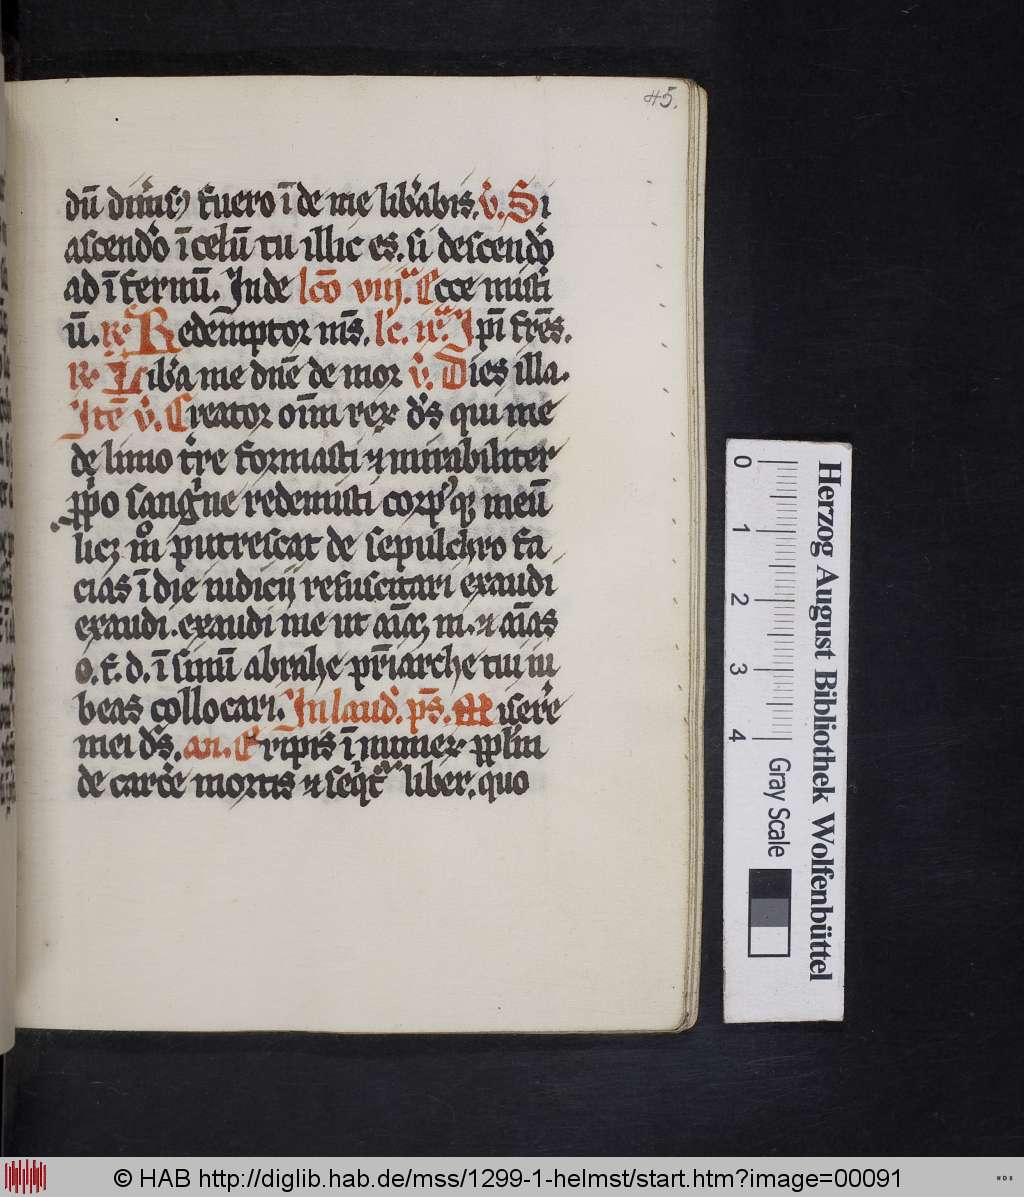 45.
dū dimis᷒ fuero ī de me lib̓abis. v̓. Si
ascend̓o ī celū tu illic es. si descend̓o
ad īfernū. Inde lcō viijᵃ. Ecce misti
ū. R Redēmptor m̄s. lc̄. ixᵃ. Ip̄i frēs.
R Lib̓a me dn̄e de mor v̓. Dies illa.
Itē v̓. Creator oīm rex d̓s qui me
de limo t̓re formasti ⁊ mirabiliter
ꝓp̓o sang̓ne redemisti corp᷒qꝫ meū
licꝫ mͦ putrescat de sepulchro fa
cias ī die iudicij resuscitari exaudi
exaudi. exaudi me ut aīaꝫ m. ⁊ aīas
o. f. d. ī sinū abrahe pr̄iarche tui iu
beas collocari. In laud̓. ps̄. Miser̓e
mei d̓s. an. Eripis ī numex ꝓpl̓m
de carc̓e mortis ⁊ seq̄tᵃ liber. quo
Herzog August Bibliothek Wolfenbüttel
0 1 2 3 4
Gray Scale
© HAB http://diglib.hab.de/mss/1299-1-helmst/start.htm?image=00091